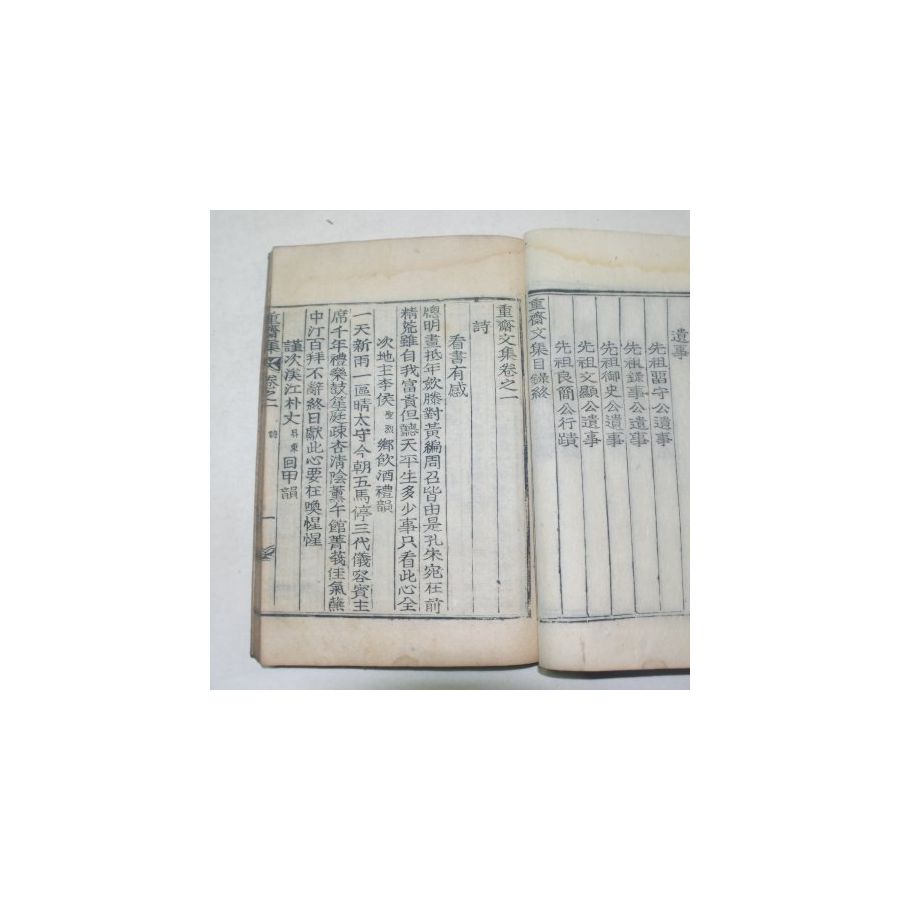 遺事
先祖留守公遺事
先祖錄事公遺事
先祖御史公遺事
先祖文顯公遺事
先祖良簡公行蹟
重齋文集目錄終
重齋文集卷之一
詩
看書有感
聰明晝抵年飲滕對黃編周召皆由是孔朱宛在前
精荒雖自我富貴但聽天平生多少事只看此心全
次地主李侯 聖烈 鄉飲酒禮韻
一天新雨一區晴太守今朝五馬停三代儀容賓主
席千年禮樂鼓笙庭疎杏清陰薰午館菁莪佳氣蘸
中汀百拜不辭終日獻此心要在喚惺惺
謹次溪江朴丈 昇東 回甲韻
重齋集 卷之一 詩 一